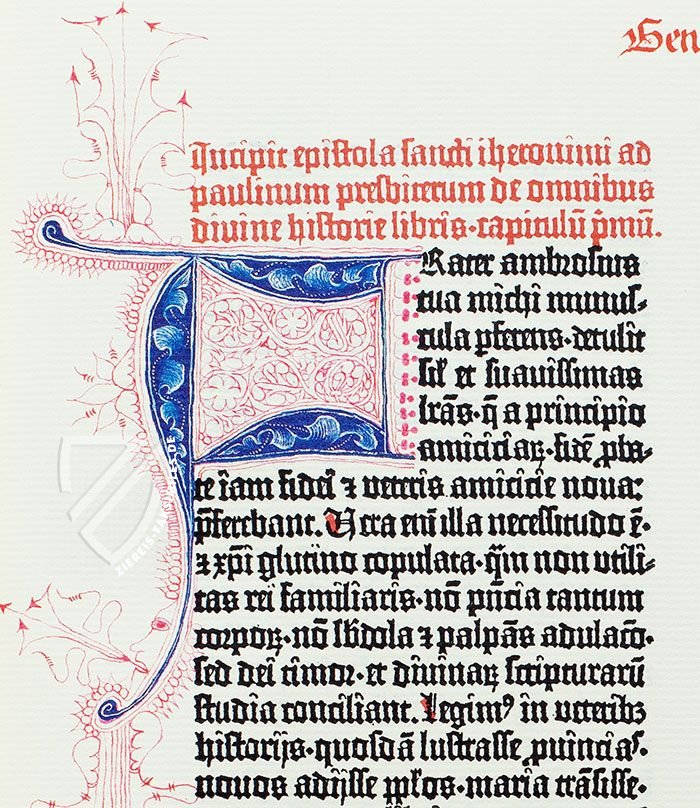 Gen
Incipit epistola sancti iheronimi ad
paulinum presbiterum de omnibus
divine historie libris·capitulū p̄mū.
FRater ambrosius
tua michi munus-
cula p̄ferens·detulit
sil̛ et suavissimas
lr̄as·q̄ a principio
amiciciaꝝ·fidē ꝓba-
te iam fidei ⁊ veteris amicicie nova:
p̄ferebant. Vera eni̅ illa necessitudo ē·
⁊ xp̄i glutino copulata·q̄m non utili-
tas rei familiaris·nō p̄ncia tantum
corpoꝝ·nō sb̄dola ⁊ palpās adulacō·
sed dei timor·et divinaꝝ scripturarū
studia conciliant. Legimꝰ in veteribꝫ
historijs·quosdā lustrasse ꝓvincias·
novos adijsse pp̄los·maria trāsisse·
ZIEREIS